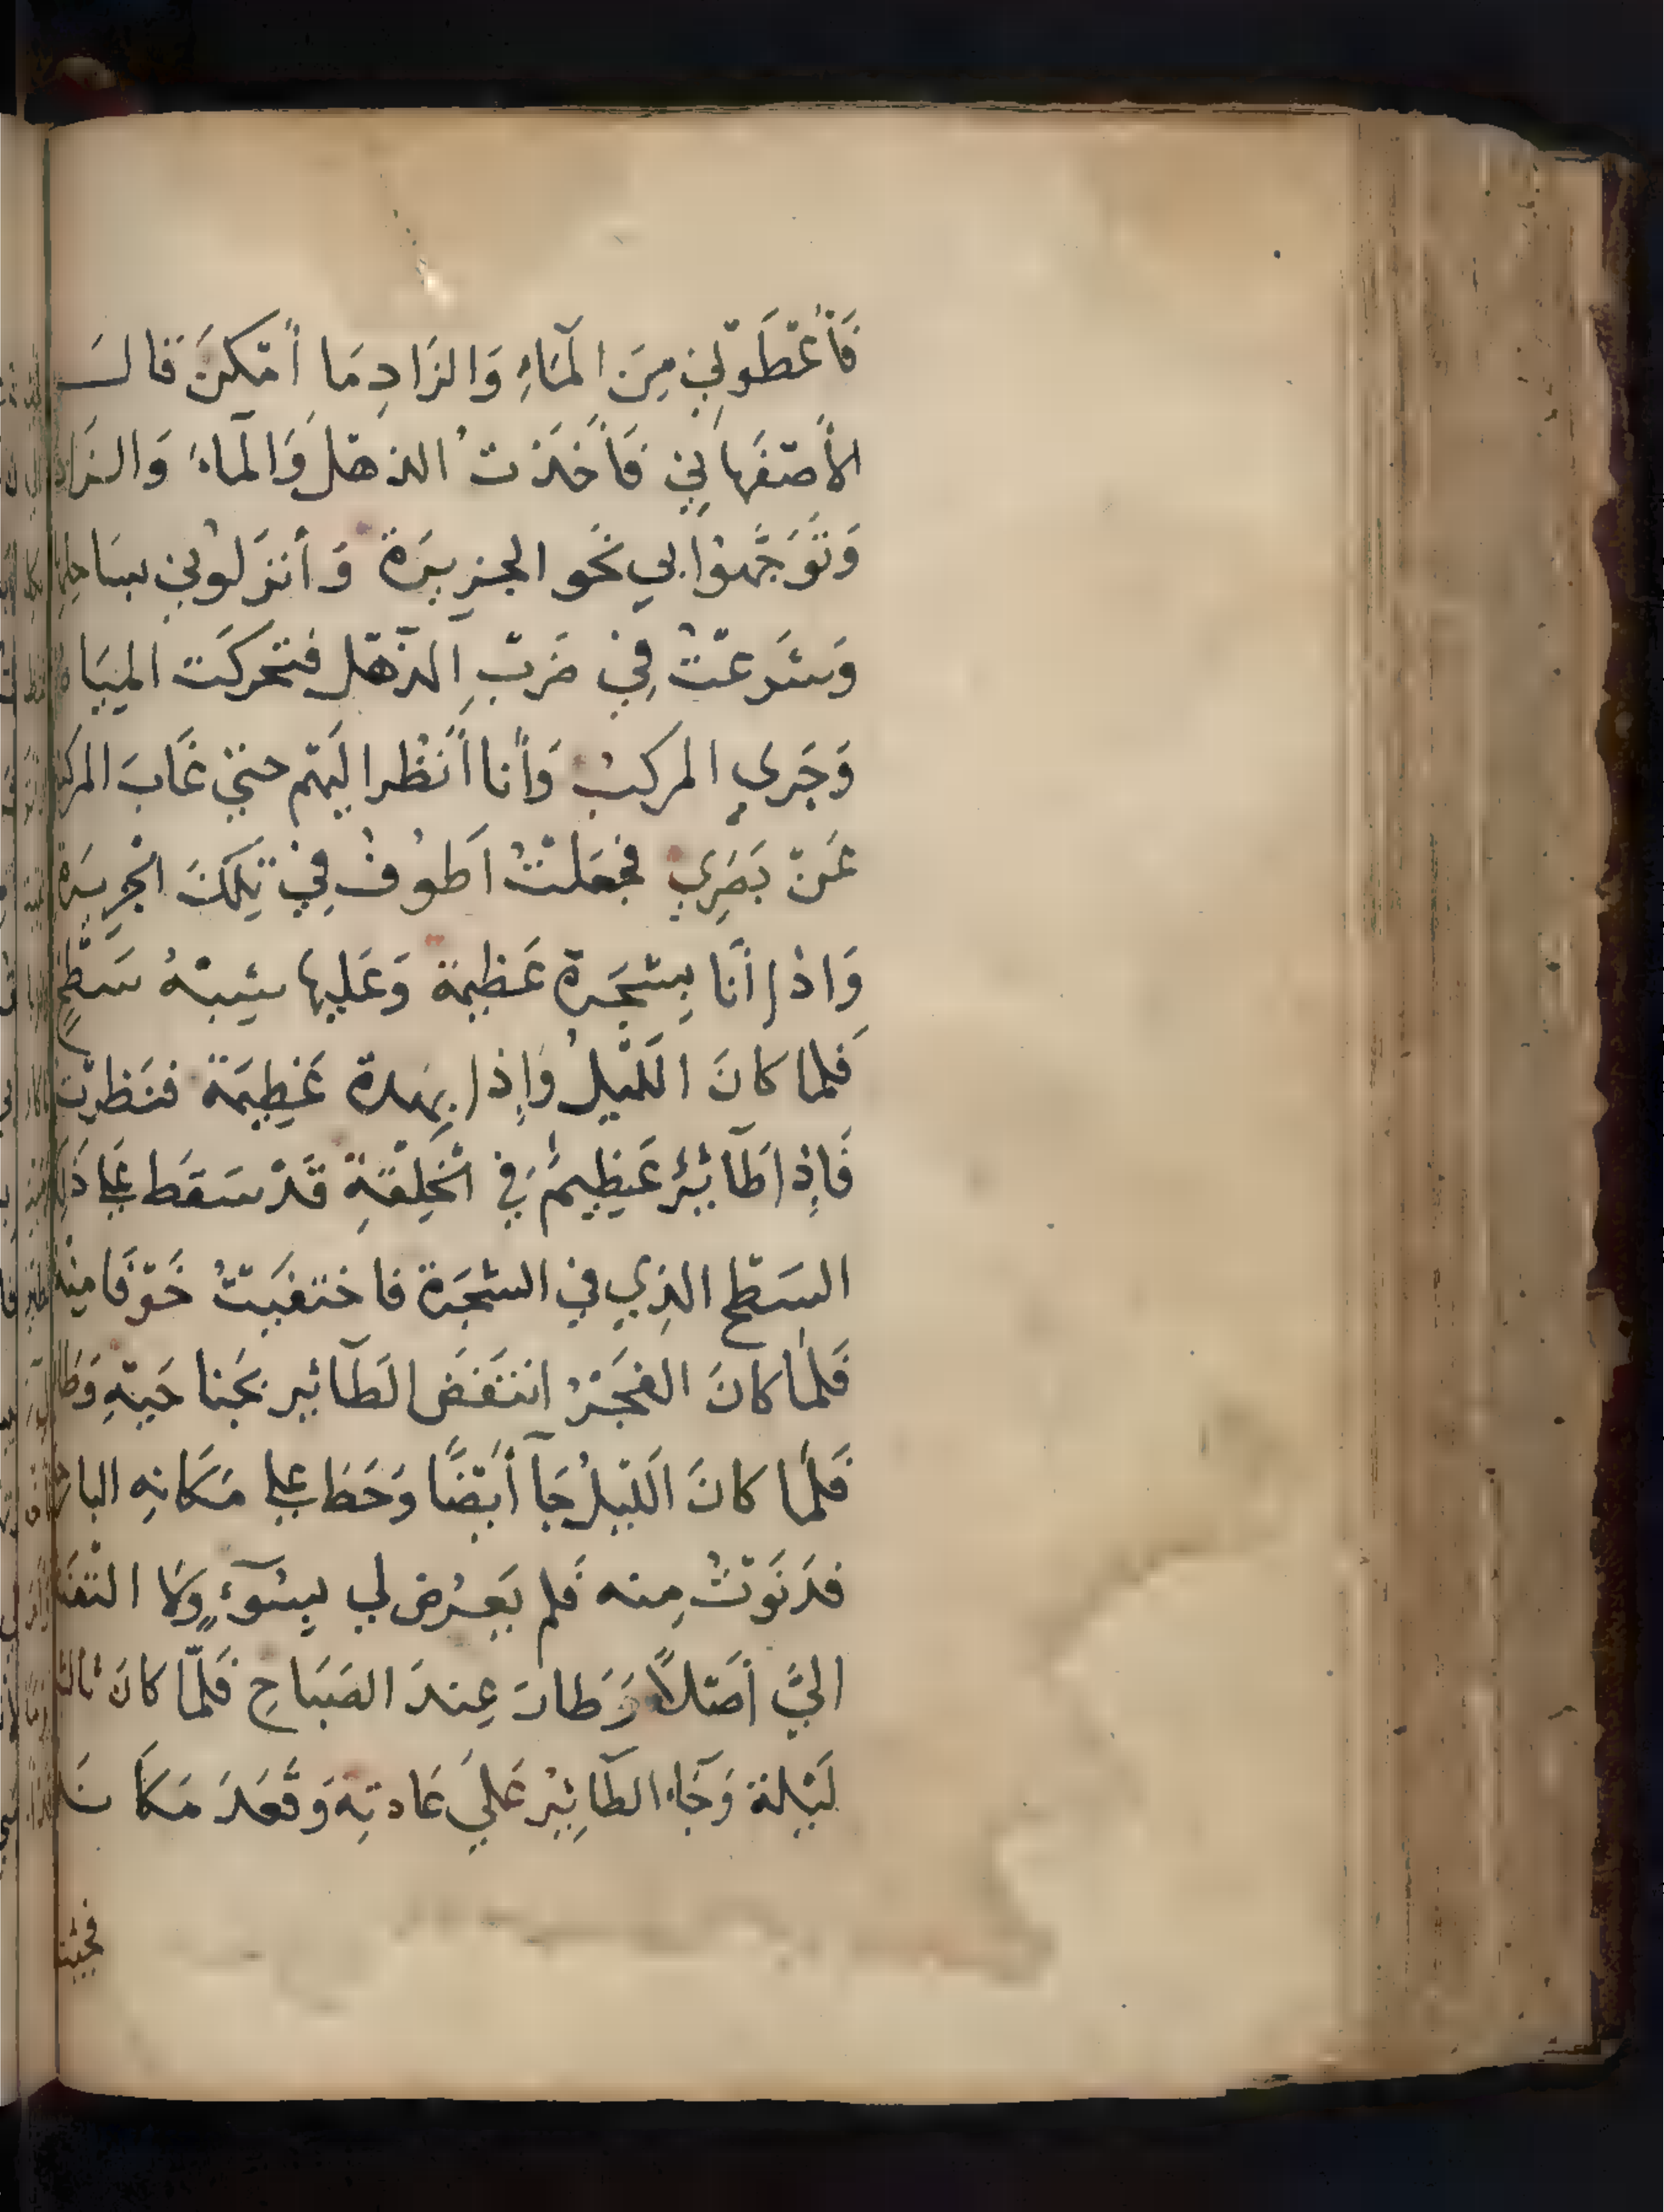 فَأَعْطَوْنِي مِنَ الْمَآءِ وَالزَادِ مَا أَمْكَنَ قَالَ
الأَصْفَهانِي فَأَخَذتُ الدهْلَ وَالْمآءَ وَالزَاد
وَتَوَجَّهُوا بي نَحْو الجزيرَة وَأنزَلُونِي بسَاحِلِهَا
وَشَرعْتُ فِي ضَرْبِ الدَّهْل فتحركَت المِيَاه
وَجَرى المركبُ وَأَنا أَنْظُر الَيْهم حتى غَابَ المركب
عَنْ بَصَرِي فجعَلْتُ اَطُوفُ فِي تِلْكَ الْجزِيرَة
وَاذا أَنَا بِشَجَرة عَظِيمة وَعَليها شِبْهُ سَطْحٍ
فَلما كانَ اللَّيلُ وَإذا بِهدة عَظِيمَة فنَظرْتُ
فَإِذا طَآئِرٌ عَظِيمٌ فِي الْخِلْقَةِ قَدْ سَقَط عَلى ذَلِكَ
السَطْح الذِي في الشجَرة فاختفَيْتُ خَوْفًا مِنْهُ
فَلَمَّا كانَ الفَجْرُ انتَفَضَ الطَآئِر بجَناحَيْهِ وَطَار
فَلَمَّا كانَ اللَيْلُ جَآ أَيْضًا وَحَط على مَكَانِهِ البارح
فدَنَوْتُ مِنه فَلم يَعرُض لي بِسُوٓءٍ وَلا التَفَتَ
اليَّ أَصْلاً وَطارَ عِندَ الصَبَاحِ فَلَمَّا كانَ ثالث
لَيْلة وَجَآء الطَآئِرُ عَلى عَادتِهِ وَقَعَدَ مَكَانه
فجئت